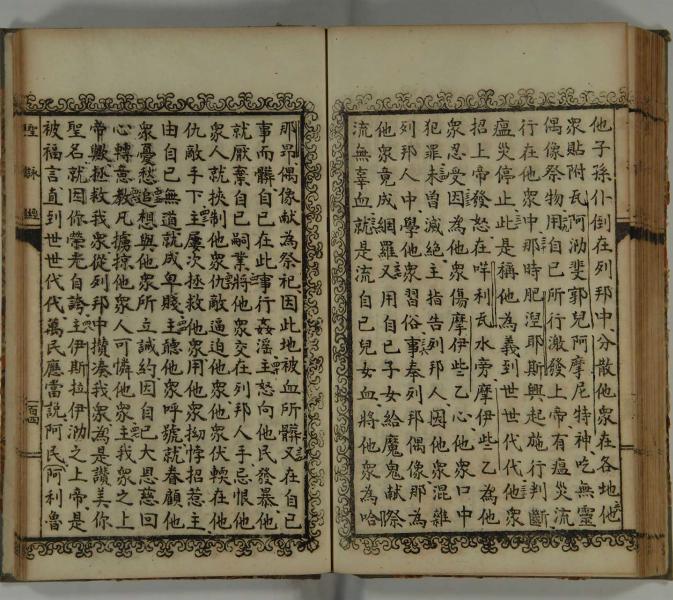 他子孫仆倒在列邦中分散他衆在各地他
衆貼附瓦阿泐斐郭兒阿摩尼特神吃無靈
偶像祭物用自己所行激發上帝有瘟災流
行在他衆中那時肥湼耶斯興起施行判斷
瘟災停止此是稱他為義到世世代代他衆
招上帝發怒在咩利瓦水旁摩伊些乙為他
衆忍受因為他衆傷摩伊些乙心他衆口中
犯罪未曽滅絶主指告列邦人因他衆混雜
列邦人中學他衆習俗事奉列邦偶像那為
他衆竟成網羅又用自己子女給魔鬼献祭
流無辜血就是流自己兒女血將他衆為哈
那昻偶像献為祭祀因此地被血所髒又在自己
事而髒自己在此事行姦滛主怒向他民發暴他
就厭棄自己嗣業將他衆交在列邦人手忌恨他
衆人就挾制他衆仇敵逼迫他衆他衆伏輭在他
仇敵手下主屢次拯救他衆用他衆拗悖招惹主
由自己無道就成卑賤主聽他衆呼號就眷顧他
衆憂愁追想與他衆所立誡約因自己大恩慈回
心轉意教凡擄掠他衆人可憐他衆主我衆之上
帝歟拯救我衆從列邦中攢凑我衆為是讚美你
聖名就因你榮光自誇主伊斯拉伊泐之上帝是
被福言直到世世代代萬民應當說阿民阿利魯
聖詠經
百四